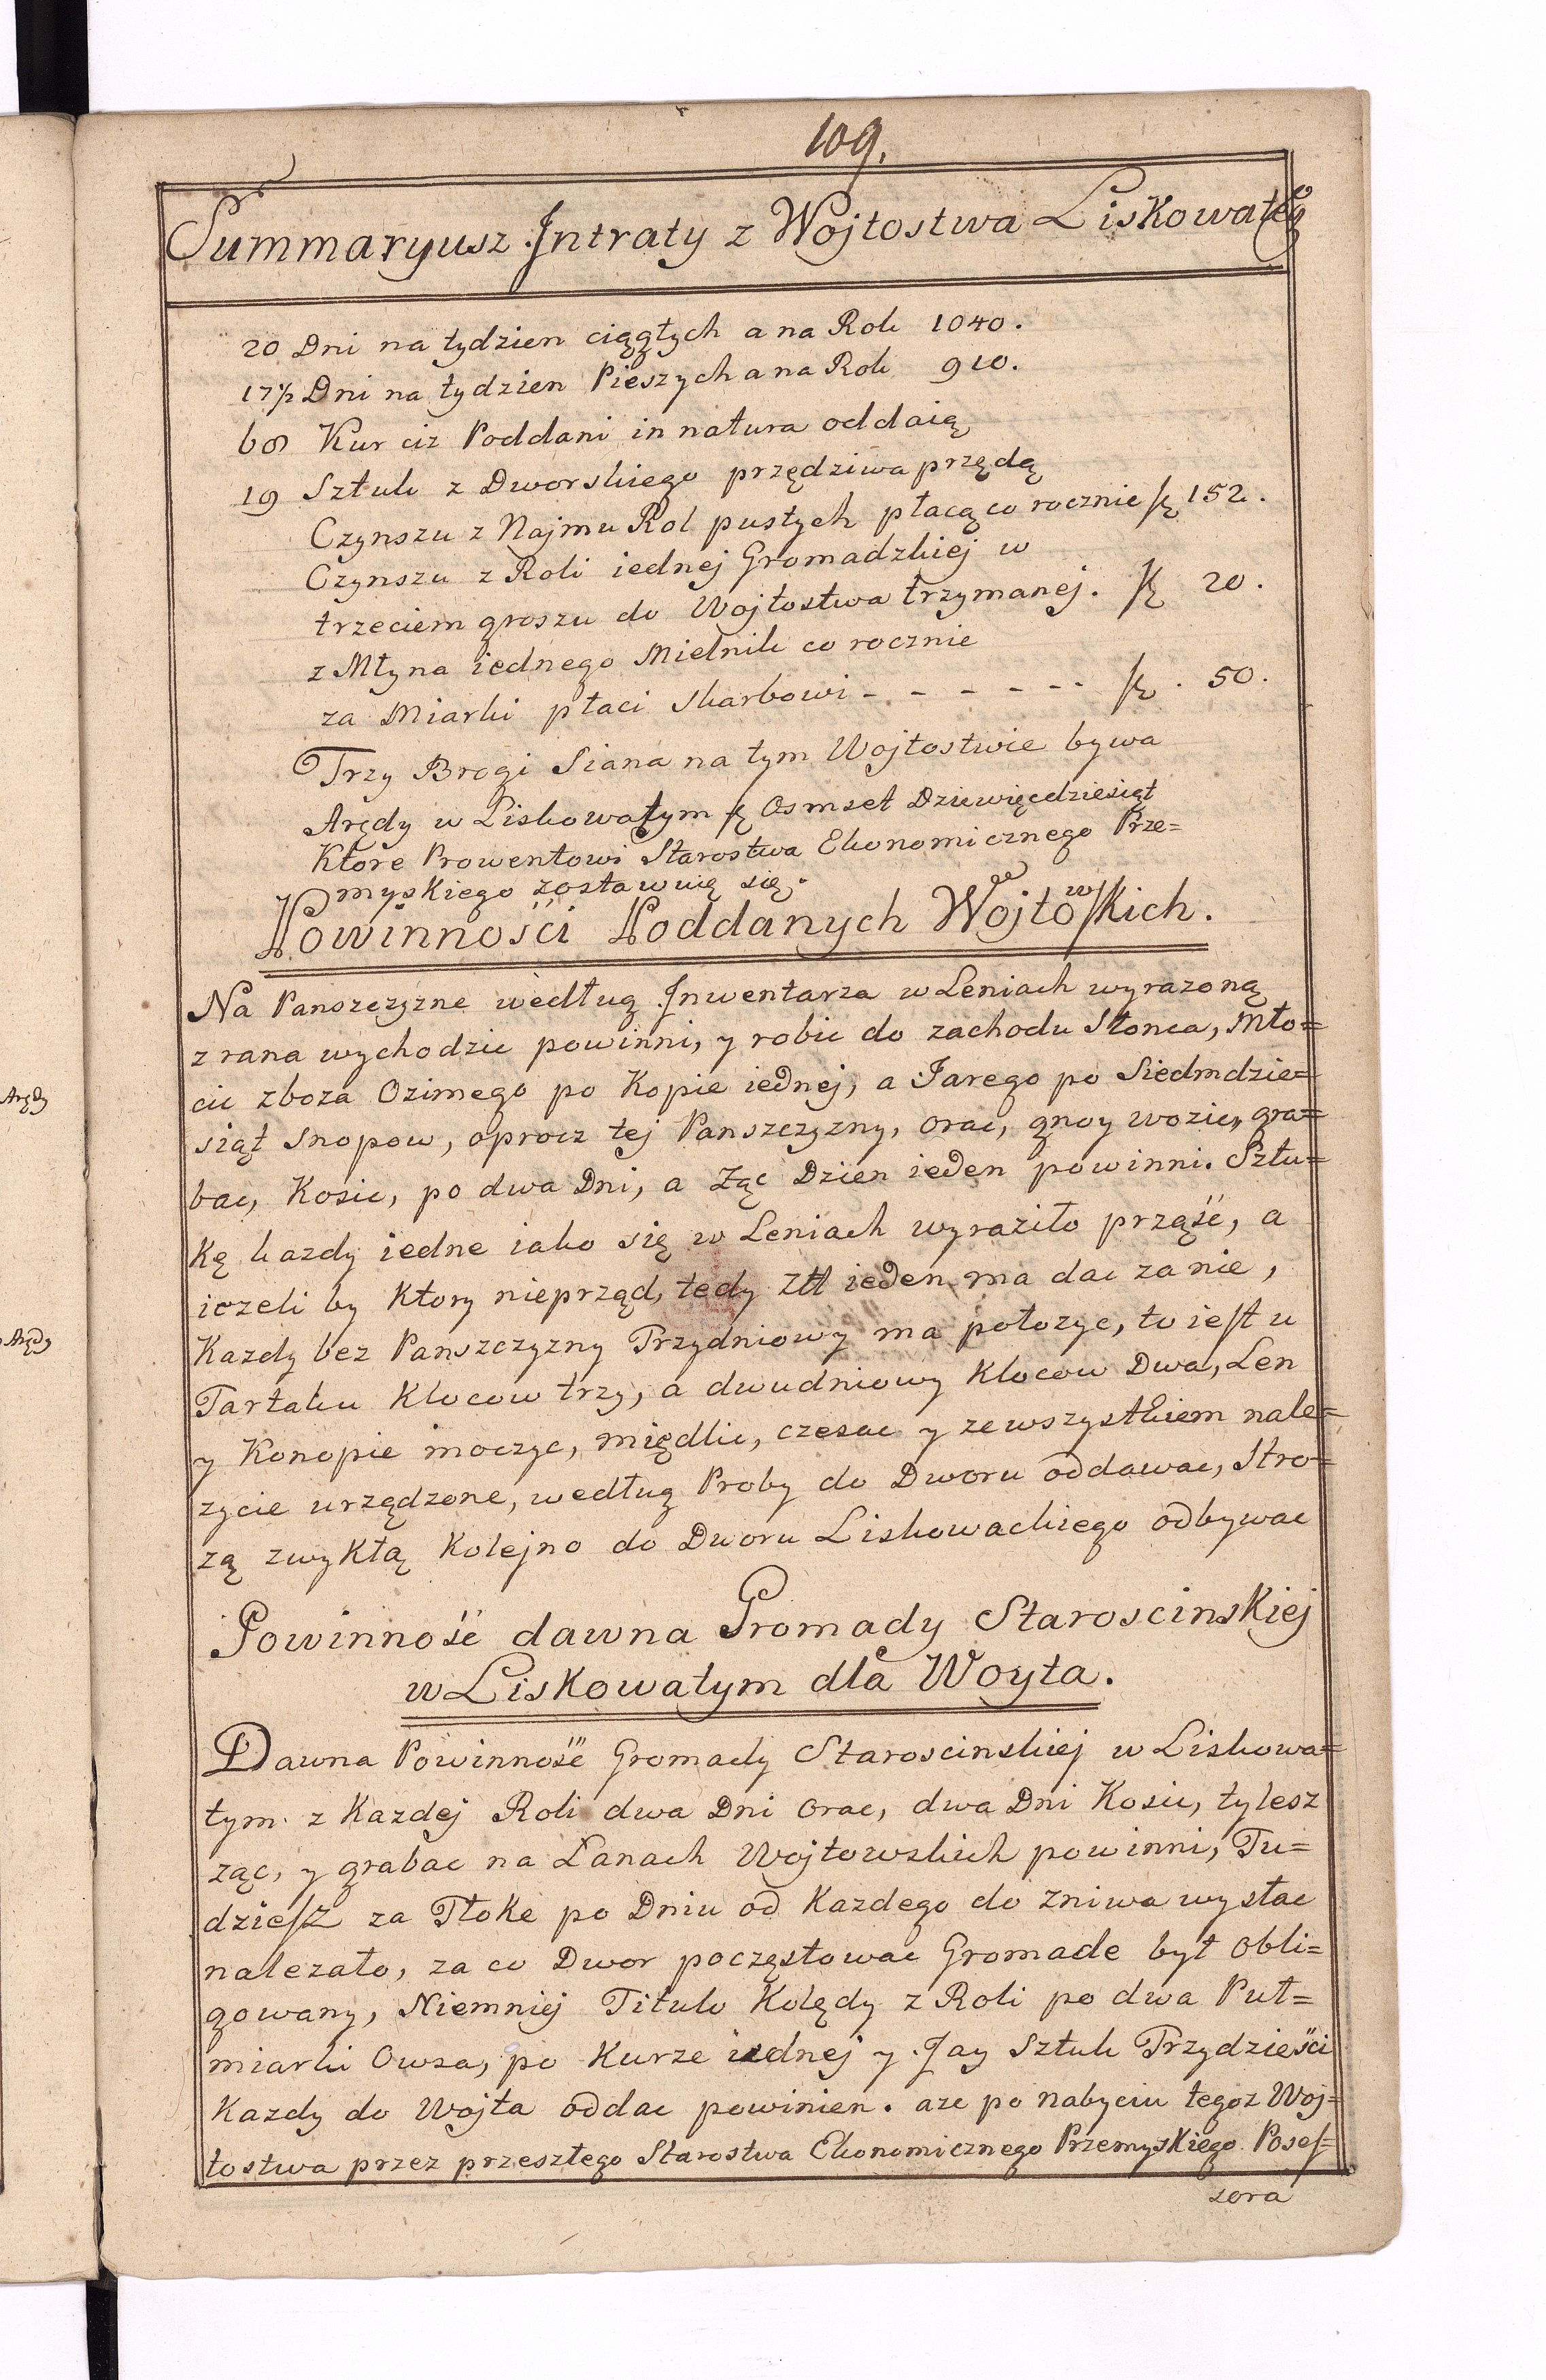 109.
Summaryusz Intraty z Wojtostwa Liskowatego
20 Dni na tydzien ciągłych a na Rok 1040.
17½ Dni na tydzien Pieszych a na Rok 910.
68 Kur ciz Poddani in natura oddaią
19 Sztuk z Dworskiego przędziwa przędą
Czynszu z Najmu Rol pustych płacą co rocznie fł 152.
Czynszu z Roli iednej Gromadzkiej w
trzeciem groszu do Wojtostwa trzymanej. fł 20.
z Młyna iednego Mielnik co rocznie
za Miarki płaci Skarbowi - - - - - - fł. 50.
Trzy Brogi Siana na tym Wojtostwie bywa
Arędy w Liskowatym fł Osmset Dziewięcdziesiąt
Ktore Prowentowi Starostwa Ekonomicznego Prze=
myskiego zostawuię się.
Powinności Poddanych Wojtowskich.
Na Panszczyzne według Inwentarza w Leniach wyrazoną
z rana wychodzic powinni, y robic do zachodu Słonca, Mło=
cic zboza Ozimego po Kopie iednej, a Jarego po Siedmdzie=
siąt Snopow, oprocz tej Panszczyzny, orac, gnoy wozic, gra=
bac, Kosic, po dwa Dni, a Ząc Dzien ieden powinni. Sztu=
Kę kazdy iedne iako się w Leniach wyraziło prząść, a
iezeli by Ktory nieprząd, tedy Złł ieden ma dac za nie,
Kazdy bez Panszczyzny Trzydniowy ma połozyc, to iest u
Tartaku Klocow trzy, a dwudniowy Klocow Dwa, Len
y Konopie moczyc, międlic, czesac y zewszystkiem nale=
zycie urządzone, według Proby do Dworu oddawac, Stro=
zą zwykłą Kolejno do Dworu Liskowackiego odbywac
Powinność dawna Gromady Staroscinskiej
w Liskowatym dla Woyta.
Dawna Powinność Gromady Staroscinskiej w Liskowa=
tym z Kazdej Roli dwa Dni orac, dwa Dni Kosic, tylesz
ząc, y grabac na Lanach Wojtowskich powinni, Tu=
dziesz za Tłoke po Dniu od Kazdego do zniwa wysłac
nalezało, za co Dwor poczęstowac Gromade był obli=
gowany, Niemniej Titulo Kolędy z Roli po dwa Puł=
miarki Owsa, po Kurze iednej y Jay Sztuk Trzydzieści
Kazdy do Wojta oddac powinien. aze po nabyciu tegoz Woj=
tostwa przez przeszłego Starostwa Ekonomicznego Przemyskiego Poses=
sora
Arędy
Arędy